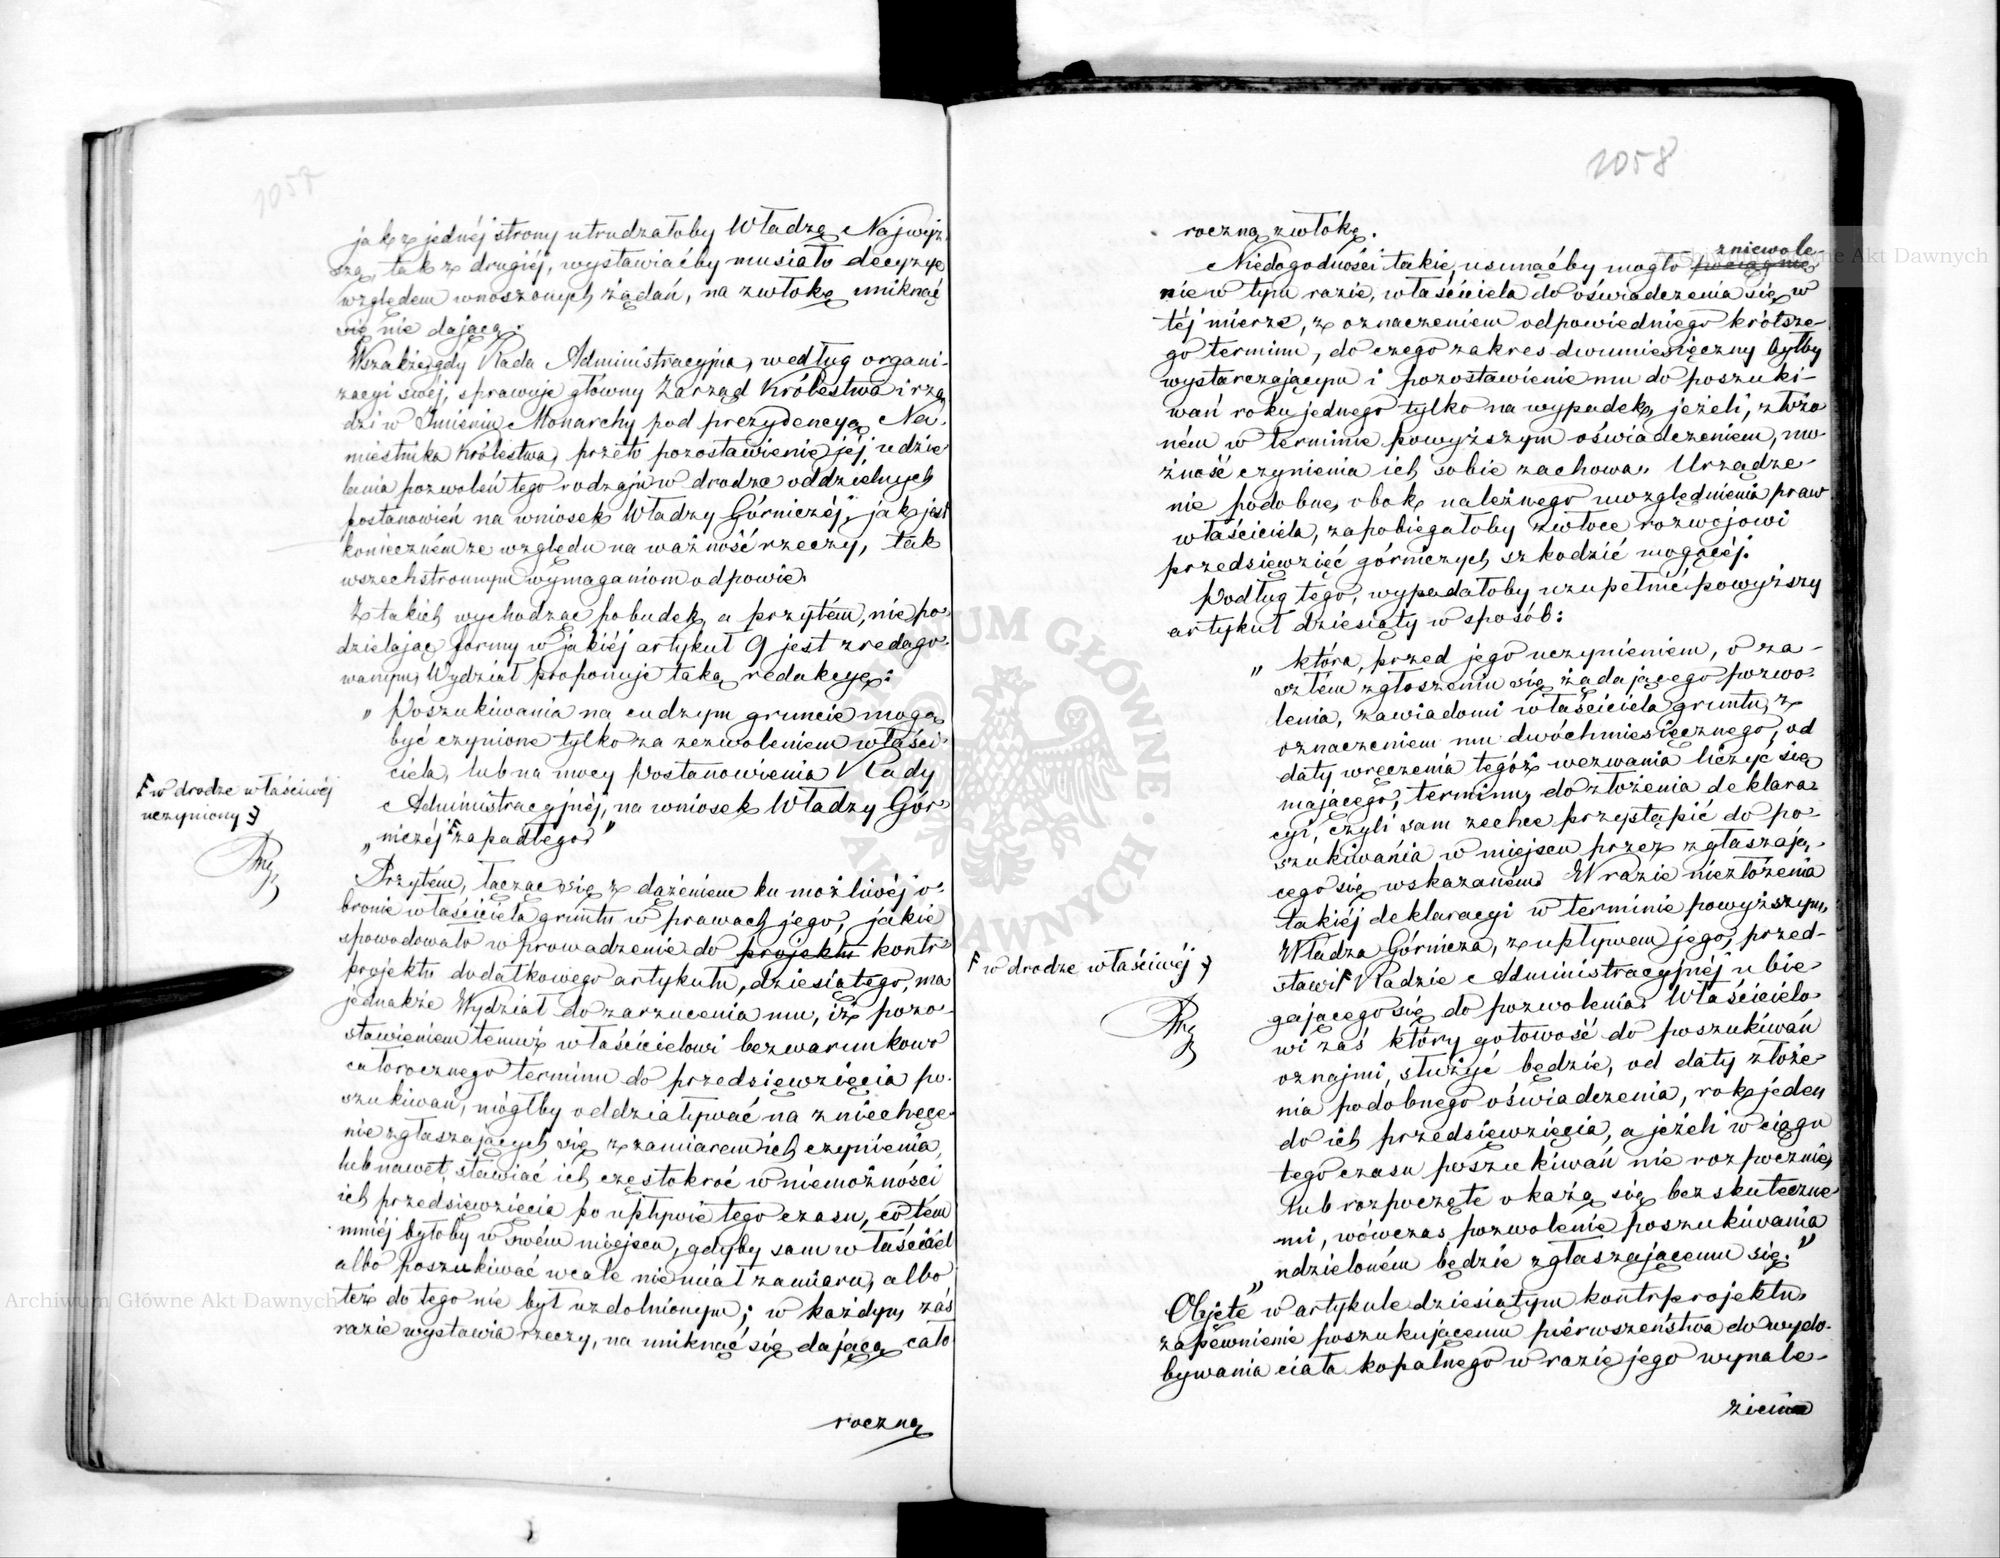 1057
jak z jednéj strony utrudzałoby Władzę Najwyż
szą, tak z drugiéj, wystawiaćby musiało decyzye
względem wnoszonych żądań, na zwłokę uniknąć
się nie dającą.
Wszakże gdy Rada Administracyjna, według organi-
zacyi swéj, sprawuje główny Zarząd Królestwa i rzą
dzi w Imieniu Monarchy pod prezydencyą Na-
miestnika Królestwa, przeto pozostawienie jéj udzie
lenia pozwoleń tego rodzaju w drodze oddzielnych
postanowień na wniosek Władzy Górniczéj, jak jest
konieczném ze względu na ważność rzeczy, tak
wszechstronnym wymaganiom odpowie.
Z takich wychodząc pobudek, a przytém, nie po-
dzielając formy w jakiéj artykuł 9 jest zredago-
wanym, Wydział proponuje taką redakcyę:
„Poszukiwania na cudzym gruncie mogą
być czynione tylko za zezwoleniem właści-
ciela, lub na mocy Postanowienia Rady
Administracyjnéj, na wniosek Władzy Gór-
„niczéj zapadłego"
w drodze właściwéj
uczyniony
Przytém, łącząc się z dążeniem ku możliwéj o-
bronie właściciela gruntu w prawach jego, jakie
spowodowało wprowadzenie do projektu kontr-
projektu dodatkowego artykułu, dziesiątego, ma
jednakże Wydział do zarzucenia mu, iż pozo-
stawieniem temuż właścicielowi bezwarunkowo
całorocznego terminu do przedsięwzięcia po-
szukiwań, mógłby oddziaływać na zniechęce-
nie zgłaszających się z zamiarem ich czynienia,
lub nawet, stawiać ich częstokroć w niemożności
ich przedsięwzięcia po upływie tego czasu, co tém
mniéj byłoby w swém miejscu, gdyby sam właściciel
albo poszukiwać wcale nie miał zamiaru, albo
też do tego nie był uzdolnionym; w każdym zaś
razie wystawia rzeczy, na uniknąć się dającą cało
roczną
1058
roczną zwłokę.
Niedogodności takie, usunąćby mogło
zniewole-
nie w tym razie, właściciela do oświadczenia się w
téj mierze, z oznaczeniem odpowiedniego krótsze-
go terminu, do czego zakres dwumiesięczny byłby
wystarczającym i pozostawienie mu do poszuki-
wań roku jednego tylko na wypadek, jeżeli, złożo
ném w terminie powyższym oświadczeniem, mo-
żność czynienia ich sobie zachowa. Urządze-
nie podobne, obok należnego uwzględnienia praw
właściciela, zapobiegałoby zwłoce rozwojowi
przedsięwzięć górniczych szkodzić mogącéj.
Podług tego, wypadałoby uzupełnić powyższy
artykuł dziesiąty w sposób:
„która, przed jego uczynieniem, o za-
szłém zgłoszeniu się żądającego pozwo-
lenia, zawiadomi właściciela gruntu, z
oznaczeniem mu dwóchmiesięcznego, od
daty wręczenia tegóż wezwania liczyć się
mającego, terminu, do złożenia deklara-
cyi, czyli sam zechce przystąpić do po-
szukiwania w miejscu przez zgłaszają-
cego się wskazaném. W razie niezłożenia
takiéj deklaracyi w terminie powyższym,
Władza Górnicza, z upływem jego, przed-
stawi Radzie Administracyjnéj ubie
gającego się do pozwolenia. Właścicielo-
w drodze właściwéj
wi zaś który gotowość do poszukiwań
oznajmi, służyć będzie, od daty złoże-
nia podobnego oświadczenia, rok jeden
do ich przedsięwzięcia, a jeżeli w ciągu
tego czasu poszukiwań nie rozpocznie,
lub rozpoczęte okażą się bezskuteczne-
mi, wówczas pozwolenie poszukiwania
udzieloném będzie zgłaszającemu się."
Objęte w artykule dziesiątym kontrprojektu,
zapewnienie poszukującemu pierwszeństwa do wydo-
bywania ciała kopalnego w razie jego wynale-
zienia
Archiwum Główne Akt Dawnych
Archiwum Główne Akt Dawnych
ARCHIWUM GŁÓWNE AKT DAWNYCH